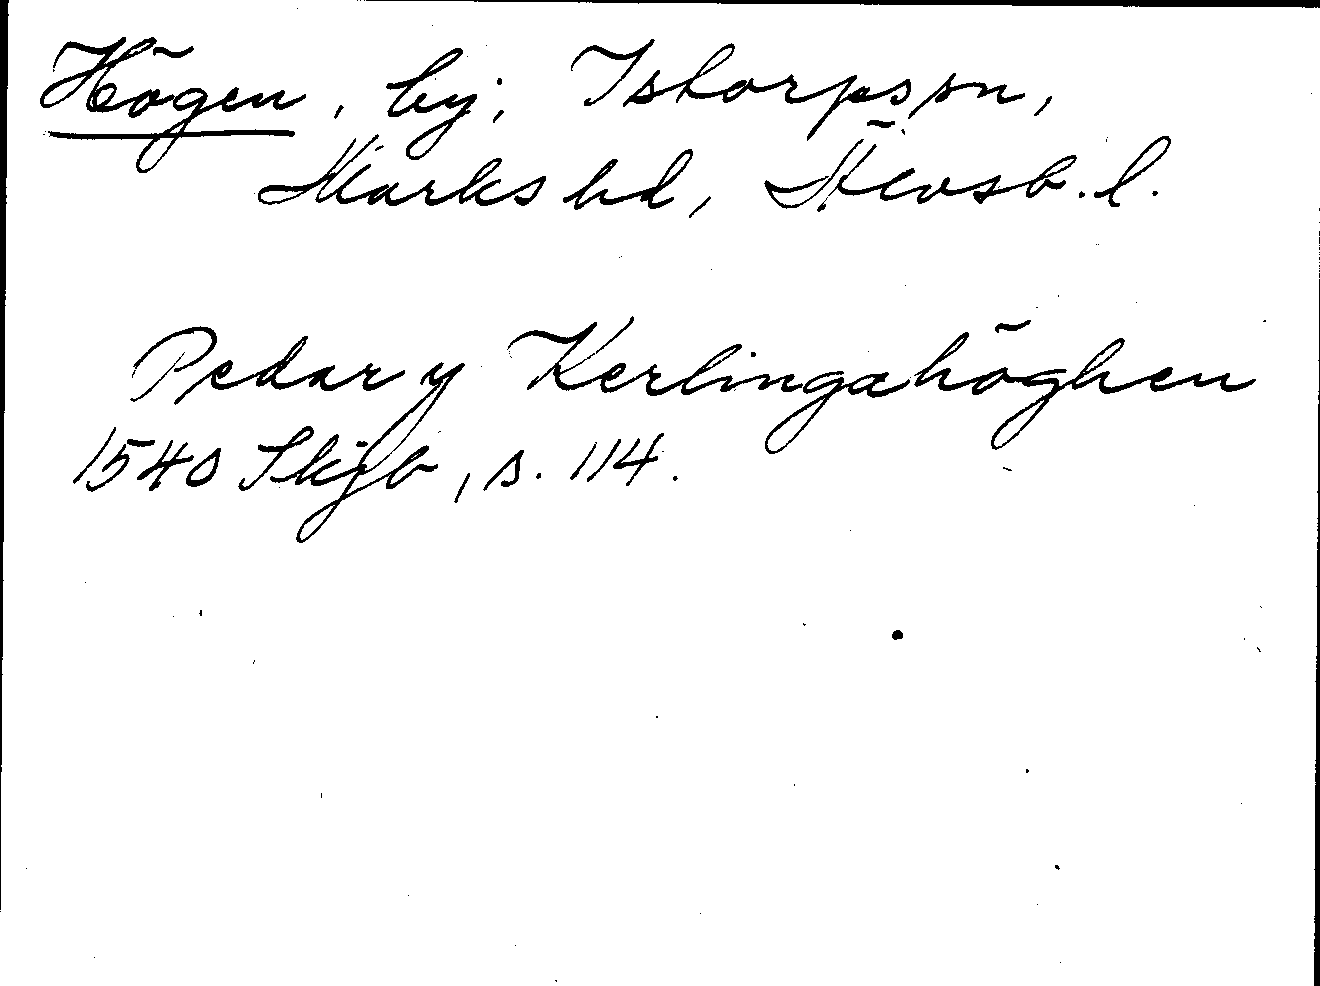 Högen, by, Istorps sn,
Marks hd, Älvsb. l.
Pedar y Kerlingahöghen
1540 Skjb, s. 114.